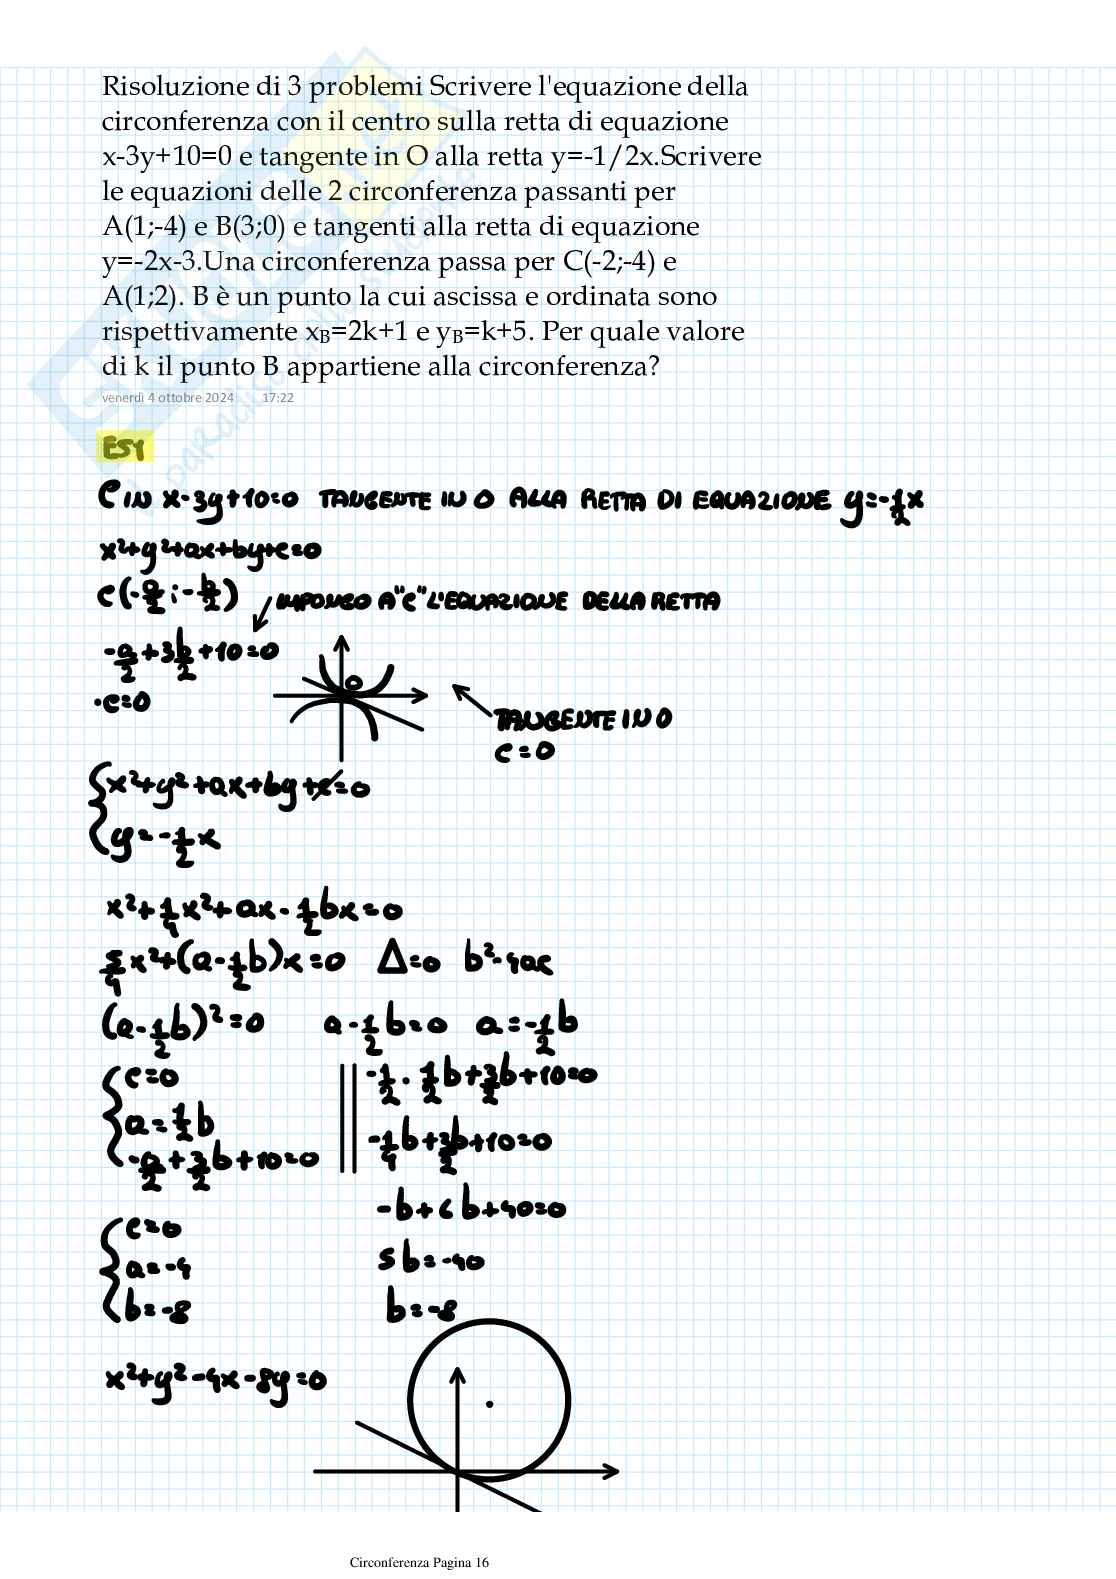 Risoluzione di 3 problemi Scrivere l'equazione della
circonferenza con il centro sulla retta di equazione
x-3y+10=0 e tangente in O alla retta y=-1/2x.Scrivere
le equazioni delle 2 circonferenza passanti per
A(1;-4) e B(3;0) e tangenti alla retta di equazione
y=-2x-3.Una circonferenza passa per C(-2;-4) e
A(1;2). B è un punto la cui ascissa e ordinata sono
rispettivamente xB=2k+1 e yB=k+5. Per quale valore
di k il punto B appartiene alla circonferenza?
venerdì 4 ottobre 2024 17:22
ES1
C IN x-3y+10=0 TANGENTE IN O ALLA RETTA DI EQUAZIONE y=-1/2x
x²+y²+ax+by+c=0
C(-a/2;-b/2) IMPONGO A "C" L'EQUAZIONE DELLA RETTA
-a/2+3b/2+10=0
O
·c=0
TANGENTE IN O
c=0
x²+y²+ax+by+c=0
y=-1/2x
x²+1/4x²+ax-1/2bx=0
5/4x²+(a-1/2b)x=0 Δ=0 b²-4ac
(a-1/2b)²=0 a-1/2b=0 a=-1/2b
c=0
a=1/2b
-a/2+3/2b+10=0
-1/2·1/2b+3/2b+10=0
-1/4b+3/2b+10=0
-b+6b+40=0
5b=-40
b=-8
c=0
a=-4
b=-8
x²+y²-4x-8y=0
Circonferenza Pagina 16